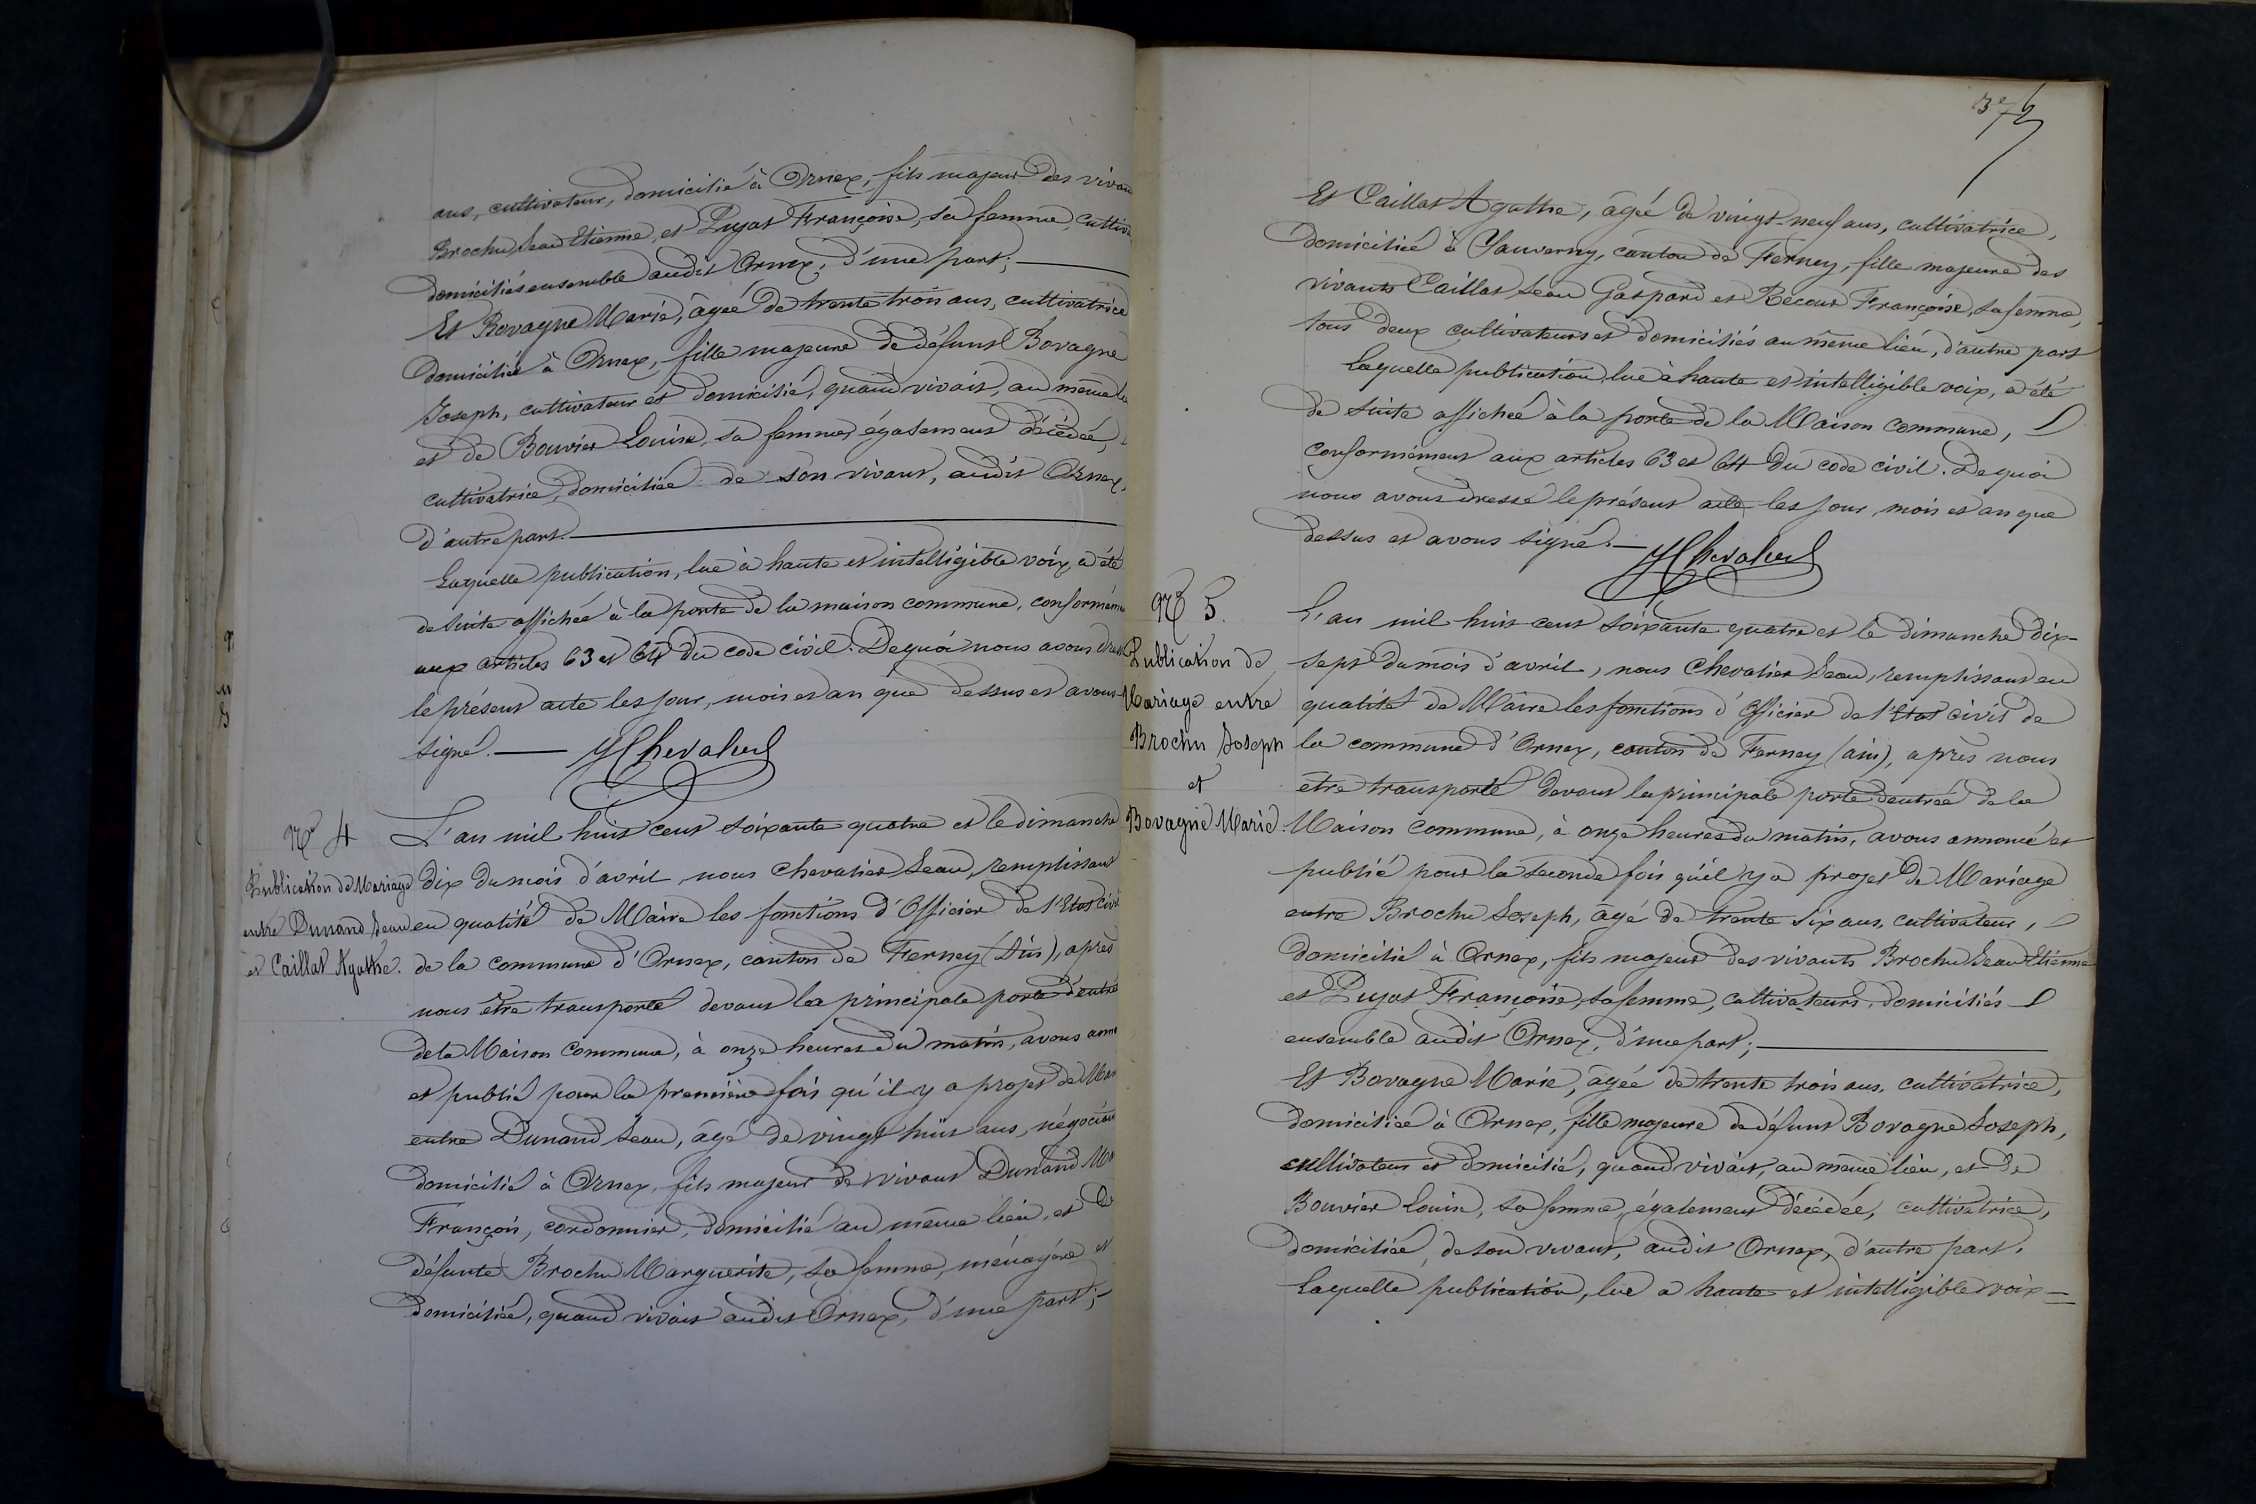 ans, cultivateur, domicilié à Ornex, fils majeur des vivan
Brochu Jean Etienne, et Pujat Françoise, sa femme, cultiv
domiciliés ensemble audit Ornex, d'une part;
Et Bovagne Marie, âgée de trente trois ans, cultivatrice
domiciliée à Ornex, fille majeure de défunt Bovagne
Joseph, cultivateur et domicilié, quand vivait, au même
et de Bouvier Louise, sa femme, également décédée,
cultivatrice, domiciliée de son vivant, audit Ornex,
d'autre part.
Laquelle publication, lue à haute et intelligible voix, a été
de suite affichée à la porte de la maison commune, conformém
aux articles 63 et 64 du code civil. De quoi nous avons dressé
le présent acte les jour, mois et an que dessus et avons
signé. JChevalier
Nº 4
Publication de Mariage
entre Dunand Jean
et Caillat Agathe.
L'an mil huit cent soixante quatre et le dimanche
dix du mois d'avril, nous Chevalier Jean, remplissant
en qualité de Maire les fonctions d'Officier de l'Etat civil
de la commune d'Ornex, canton de Ferney (Ain), après
nous être transporté devant la principale porte d'entrée
de la Maison commune, à onze heures du matin, avons ann
et publié pour la première fois qu'il y a projet de Mar
entre Dunand Jean, âgé de vingt huit ans, négociant
domicilié à Ornex, fils majeur de vivant Dunand
François, cordonnier, domicilié au même lieu, et de
défunte Brochu Marguerite, sa femme, ménagère et
domiciliée, quand vivait audit Ornex, d'une part;
Et Caillat Agathe, âgée de vingt-neuf ans, cultivatrice,
domiciliée à Sauverny, canton de Ferney, fille majeure des
vivants Caillat Jean Gaspard et Recour Françoise, sa femme,
tous deux cultivateurs et domiciliés au même lieu, d'autre part
Laquelle publication lue à haute et intelligible voix, a été
de suite affichée à la porte de la Maison commune,
conformément aux articles 63 et 64 du code civil. De quoi
nous avons dressé le présent acte les jour, mois et an que
dessus et avons signé. JChevalier
Nº 5.
Publication de
Mariage entre
Brochu Joseph
et
Bovagne Marie.
L'an mil huit cent soixante quatre et le dimanche dix-
sept du mois d'avril, nous Chevalier Jean, remplissant en
qualité de Maire les fonctions d'Officier de l'Etat civil de
la commune d'Ornex, canton de Ferney (ain), après nous
être transporté devant la principale porte d'entrée de la
Maison commune, à onze heures du matin, avons annoncé et
publié pour la seconde fois qu'il y a projet de Mariage
entre Brochu Joseph, âgé de trente six ans, cultivateur,
domicilié à Ornex, fils majeur des vivants Brochu Jean Etienne
et Pujat Françoise, sa femme, cultivateurs, domiciliés
ensemble audit Ornex, d'une part;
Et Bovagne Marie, âgée de trente trois ans, cultivatrice,
domiciliée à Ornex, fille majeure de défunt Bovagne Joseph,
cultivateur et domicilié, quand vivait, au même lieu, et de
Bouvier Louise, sa femme, également décédée, cultivatrice,
domiciliée, de son vivant, audit Ornex, d'autre part.
Laquelle publication, lue a haute et intelligible voix